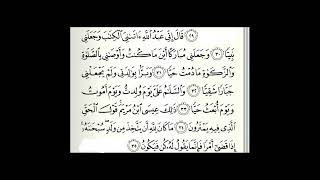 ٢٩ قَالَ إِنِّي عَبْدُ ٱللَّهِ ءَاتَىٰنِيَ ٱلْكِتَٰبَ وَجَعَلَنِي
نَبِيًّا ٣٠ وَجَعَلَنِي مُبَارَكًا أَيْنَ مَا كُنتُ وَأَوْصَٰنِي بِٱلصَّلَوٰةِ
وَٱلزَّكَوٰةِ مَا دُمْتُ حَيًّا ٣١ وَبَرًّۢا بِوَٰلِدَتِي وَلَمْ يَجْعَلْنِي
جَبَّارًا شَقِيًّا ٣٢ وَٱلسَّلَٰمُ عَلَيَّ يَوْمَ وُلِدتُّ وَيَوْمَ أَمُوتُ
وَيَوْمَ أُبْعَثُ حَيًّا ٣٣ ذَٰلِكَ عِيسَى ٱبْنُ مَرْيَمَ قَوْلَ ٱلْحَقِّ
ٱلَّذِي فِيهِ يَمْتَرُونَ ٣٤ مَا كَانَ لِلَّهِ أَن يَتَّخِذَ مِن وَلَدٍ سُبْحَٰنَهُۥٓ
إِذَا قَضَىٰٓ أَمْرًا فَإِنَّمَا يَقُولُ لَهُۥ كُن فَيَكُونُ ٣٥